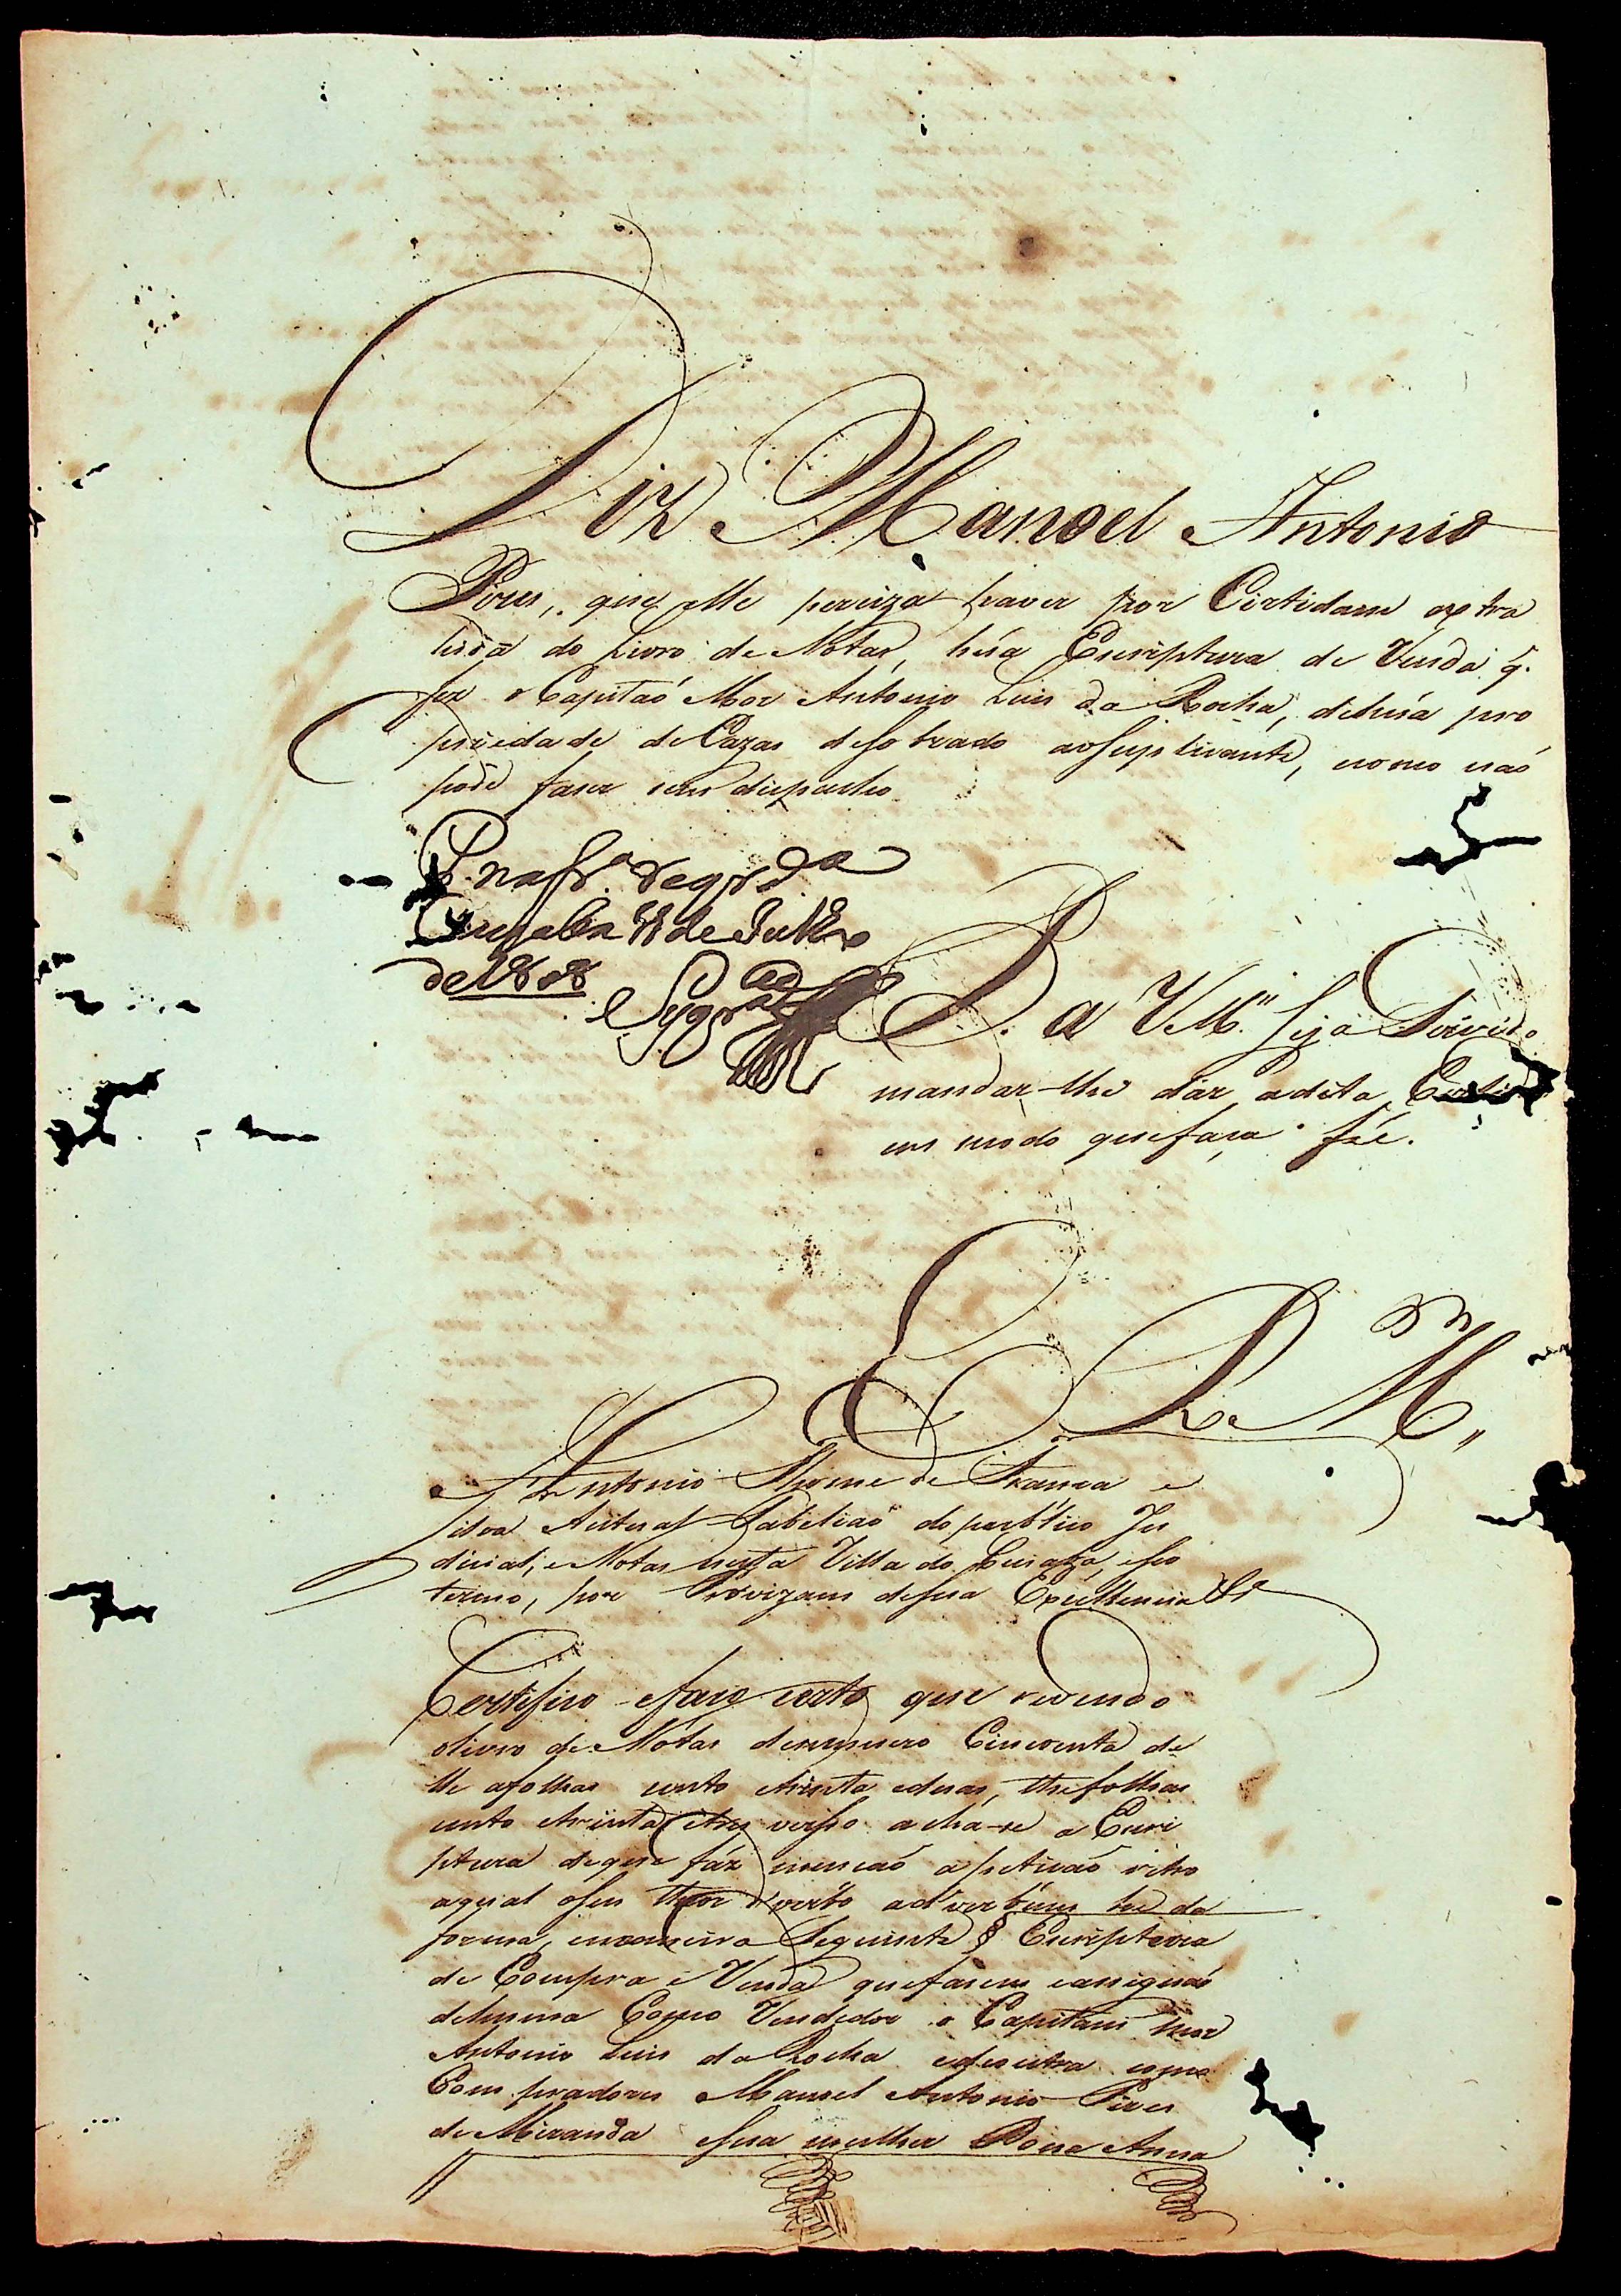 Diz Manoel Antonio
Pires, que elle perciza haver por Certidam extra
hida do Livro de Notas, húa Escriptura de Venda q.
fez o Capitaó Mor Antonio Luis da Rocha, dehúa pro
priedade de Cazas desobrado aoSuplicante, ecomo naó
pode faser sem dispacho
P. na fr.ª
de Julho
de 1808
P. a VM.ce Seja Servido
mandar-lhe dar adita
em modo que faça fée.
E R M.ce
Antonio Thome de Franca e
Silva Actual Tabeliaó do publico Ju
dicial, e Notas nesta Villa do eseo
termo, por Provizam deSua Excellencia &.ª
Certefico efaço certo que revendo
olivro de Notas denumero Cincoenta de
lle afolhas cento etrinta eduas, the folhas
cento etrinta etres verso acha-se a Escri
ptura deque fáz mencaó apeticaó retro
aqual oSeu theor de verbo adverbum he da
forma, emaneira Seguinte § Escriptura
de Compra e Venda que fazem easignaó
dehuma Como Vendedor o Capitam mor
Antonio Luis da Rocha edeoutra como
Compradores Manoel Antonio Pires
de Miranda eSua mulher Dona Anna